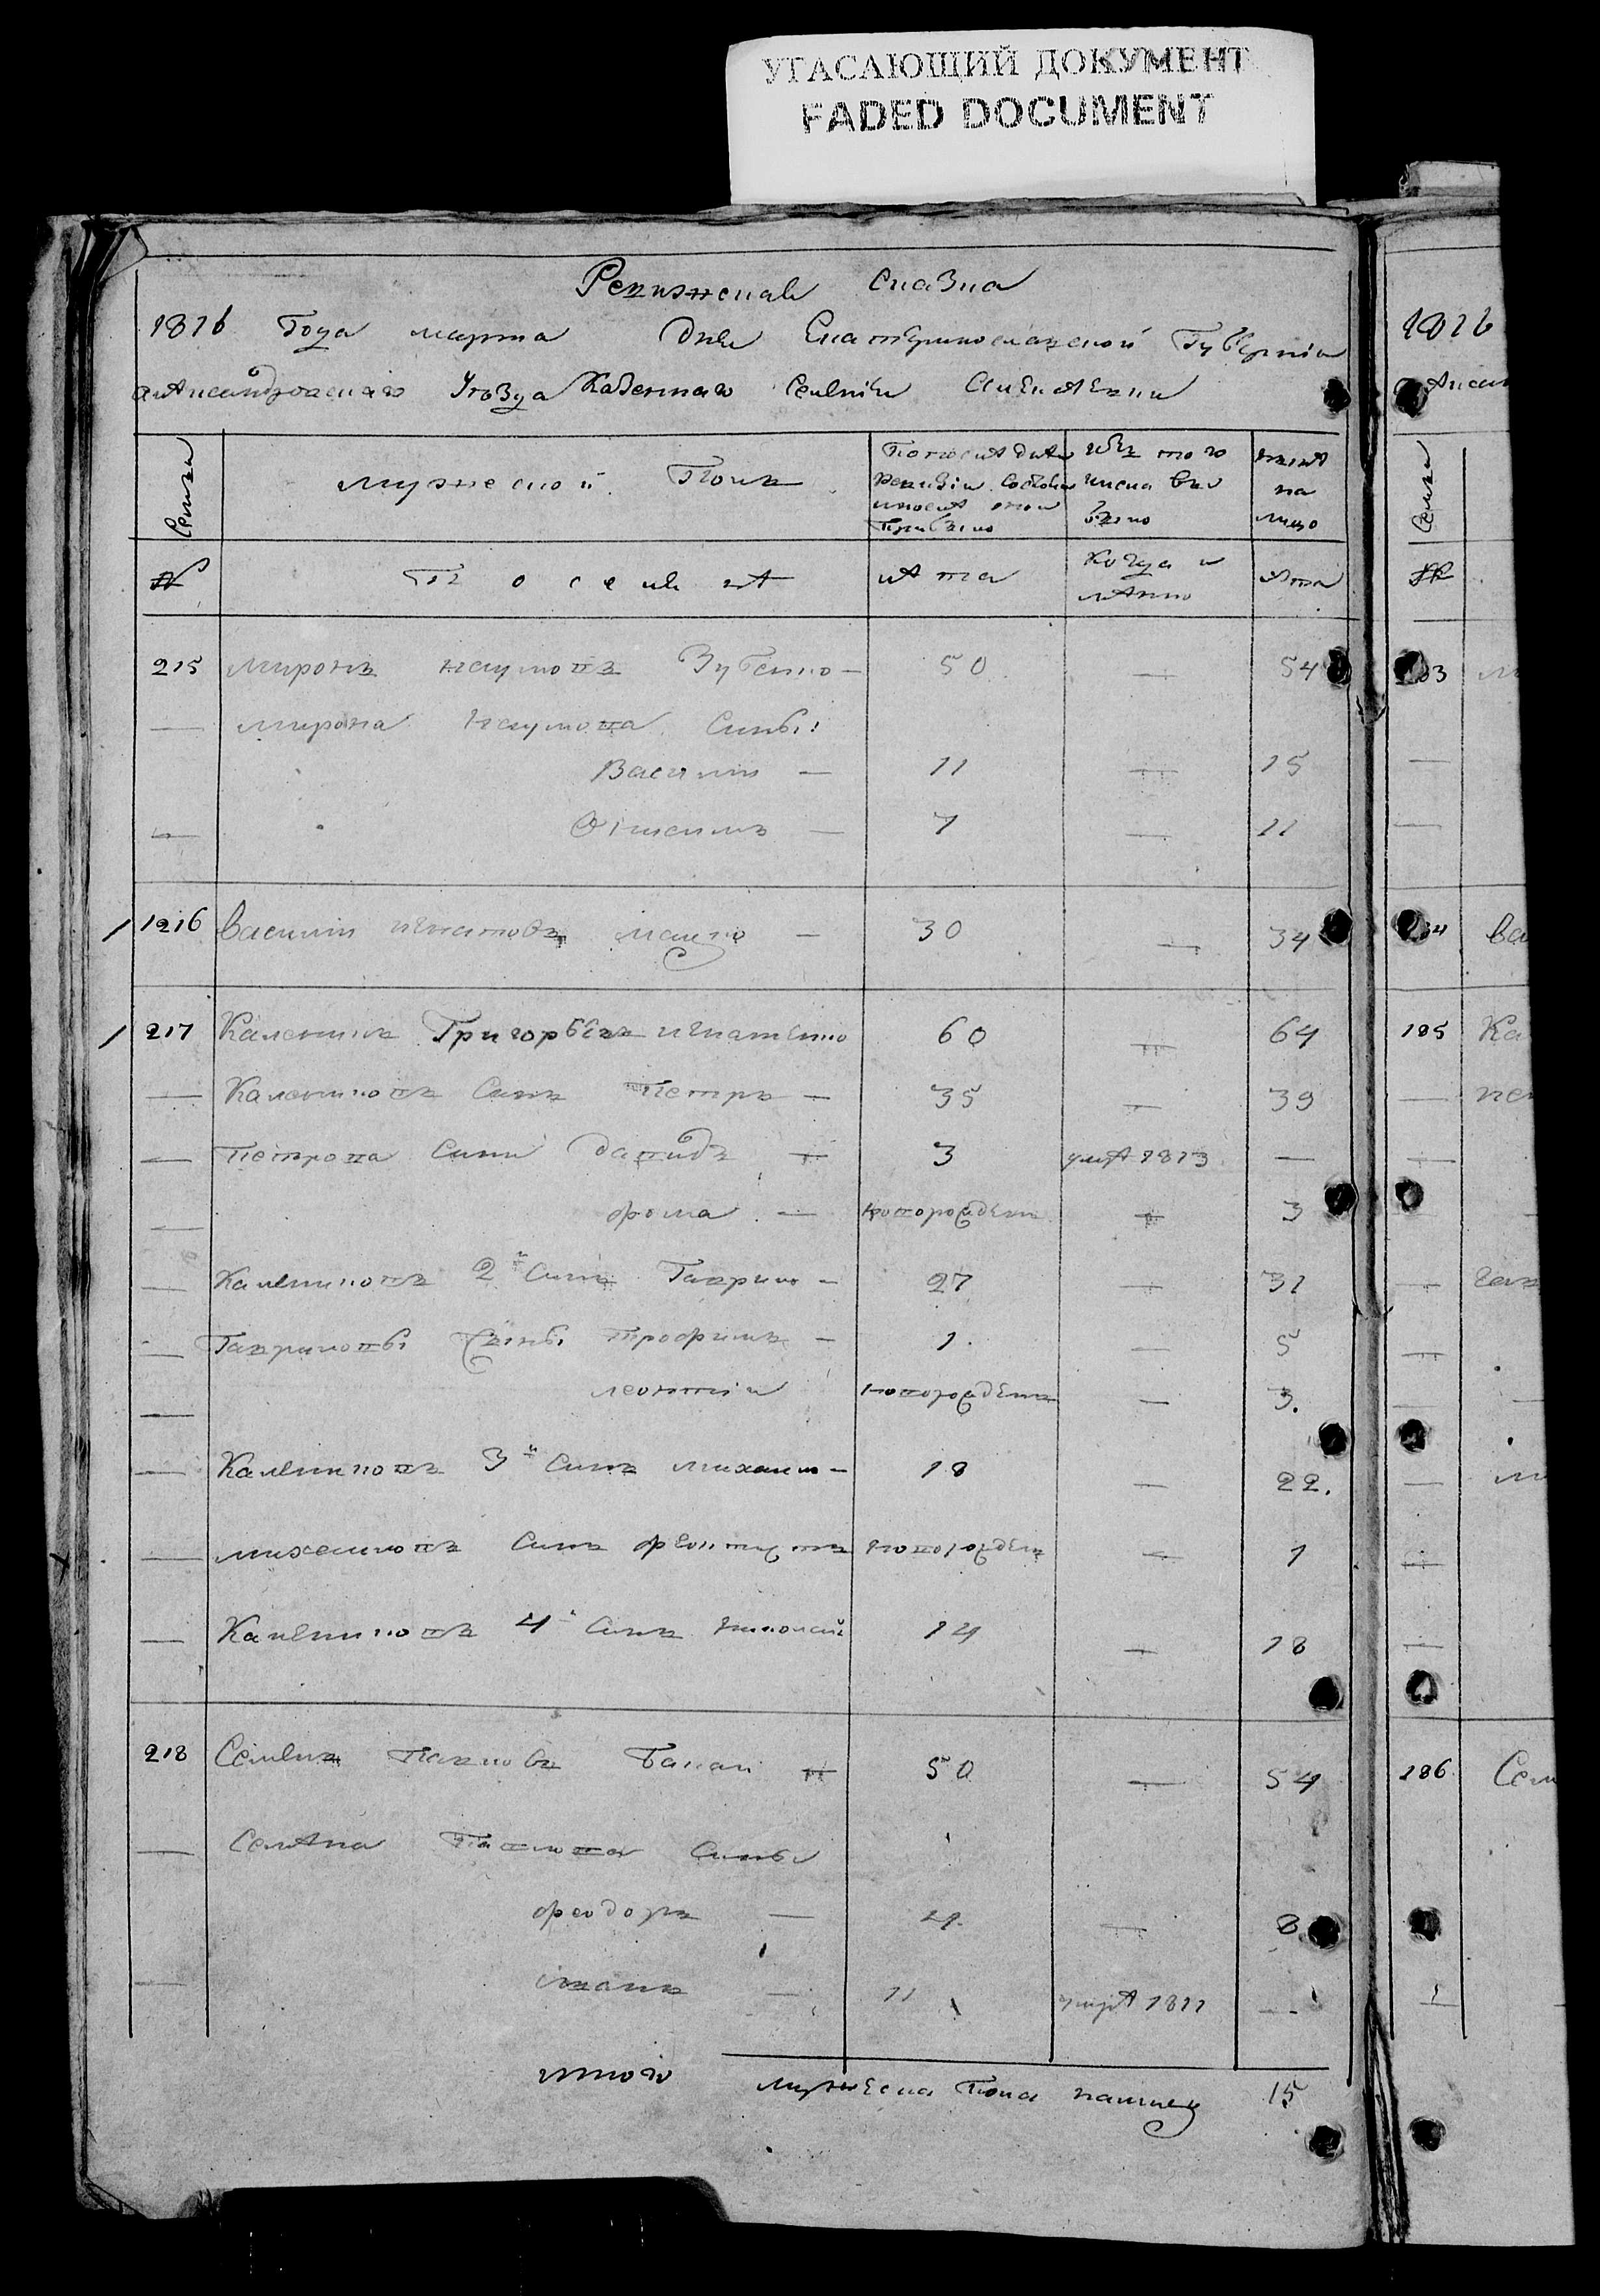 УГАСАЮЩИЙ ДОКУМЕНТ
FADED DOCUMENT
Ревизская сказка
1816 Года марта дня Екатеринославской Губернии
Александровского уѣзда Казенного селения
Семья
мужеской Полъ
По последней ревизии состояло и после оной прибыло
Изъ того числа выбыло
нынѣ на лицо
№
Поселянѣ
лѣта
Когда и
лѣта
215 миронъ наумовъ Зубенко — 50 — 54
— мирона наумова сины:
Василий — 11 — 15
— Онисимъ — 7 — 11
216 василий игнатовъ — 30 — 34
217 Каленикъ Григорьевъ игнатенко 60 — 64
— Калениковъ синъ Петръ — 35 — 39
— Петрова сини давидъ — 3 умрѣ 1813 —
— фома — новорожденъ — 3
— Калениковъ 2й синъ Гаврило — 27 — 31
— Гавриловы сыны трофимъ — 1. — 5
— леонтий новорожденъ — 3.
— Калениковъ 3й синъ михаило — 18 — 22.
— михаиловъ синъ феоктистъ новорожденъ — 1
— Калениковъ 4й синъ николай 14 — 18
218 Семенъ Павловъ — 50 — 54
— Семена Павлова сины
феодоръ — 4. — 8
— иванъ — 11 умрѣ 1811 —
итого мужеска пола налицо 15
1816
Семья
№
—
—
185 Ка
—
—
—
—
—
—
—
186 Сем
—